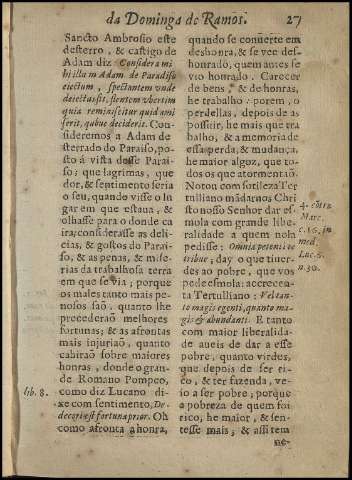 da Dominga de Ramos. 27
Sancto Ambrosio este
desterro, & castigo de
Adam diz Considera mi
hi illum Adam de Paradiso
eiectum, spectantem vnde
deiectus sit, flentem vbertim
quia reminiscitur quid ami
serit, quòve deciderit. Con-
sideremos a Adam de
sterrado do Paraiso, po-
sto á vista desse Parai-
so; que lagrimas, que
dor, & sentimento seria
o seu, quando visse o lu
gar em que estaua, &
olhasse para o donde ca
ira; considerasse as deli-
cias, & gostos do Parai-
so, & as penas, & mise-
rias da trabalhosa terra
em que se via; porque
os males tanto mais pe-
nosos saõ, quanto lhe
precederaõ melhores
fortunas; & as afrontas
mais injuriaõ, quanto
cahiraõ sobre maiores
honras, donde o gran-
de Romano Pompeo,
lib. 8. como diz Lucano di-
xe com sentimento, De-
decori est fortuna prior. Oh
como afronta a honra,
quando se conuerte em
deshonra, & se vee des-
honrado, quem antes se
vio honrado. Carecer
de bens, & de honras,
he trabalho: porem, o
perdellas, depois de as
possuir, he mais que tra
balho, & a memoria de
essa perda, & mudança,
he maior algoz, que to-
dos os que atormentaõ.
Notou com sotileza Ter
tulliano mãdarnos Chri
sto nosso Senhor dar es-
mola com grande libe-
ralidade a quem nola
pedisse: Omni a petenti te
tribue; day o que tiuer-
des ao pobre, que vos
pede esmola: accrecenta
Tertulliano: Vel tan-
to magis egenti, quanto ma-
gis & abundanti. E tanto
com maior liberalida-
de aueis de dar a esse
pobre, quanto virdes,
que depois de ser ri-
co, & ter fazenda, ve-
io a ser pobre; porque
a pobreza de quem foi
rico, he maior, & sen-
tesse mais; & assi tem
ne-
4. cõtra
Marc.
c. 16. in
med.
Luc. 6.
n. 30.